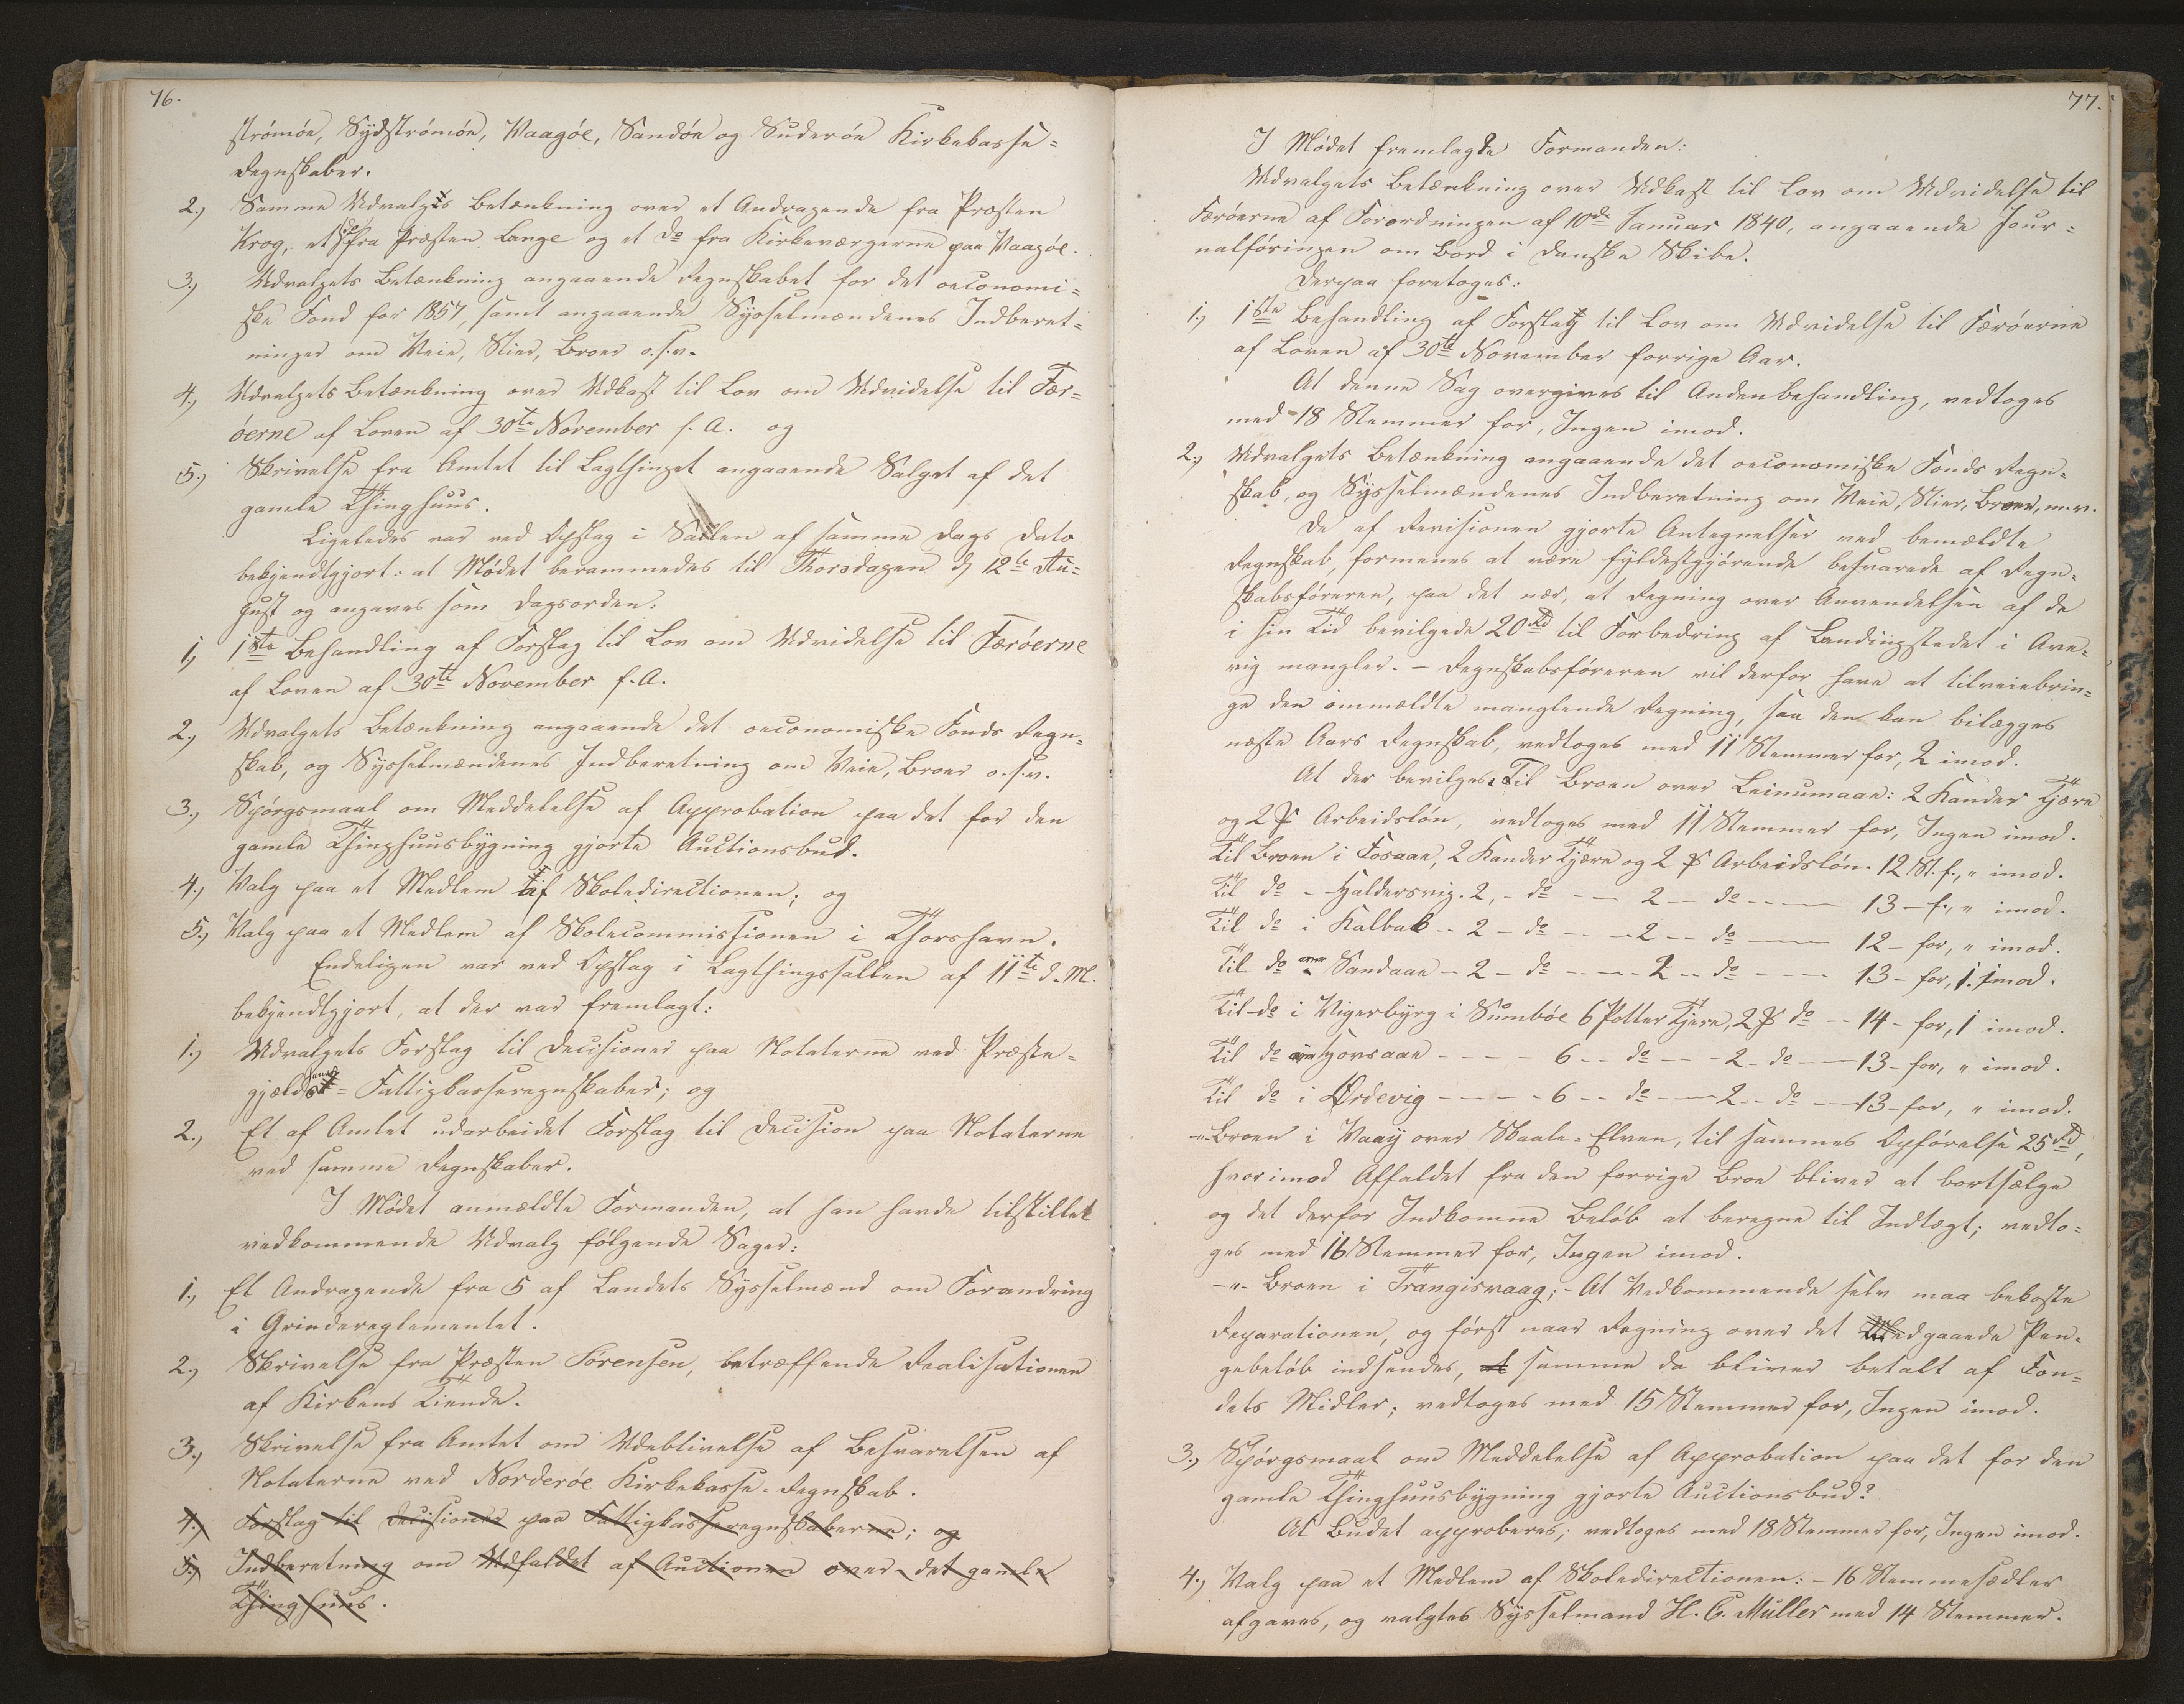 76.
strömöe, Sydströmöe, Vaagöe, Sandöe og Suderöe Kirkekasse=
Regnskaber.
2.) Samme Udvalgs Betænkning over et Andragende fra Præsten
Krog, et do fra Præsten Lange og et do fra Kirkeværgerne paa Vaagöe.
3.) Udvalgets Betænkning angaaende Regnskabet for det oeconomi=
ske Fond for 1857, samt angaaende Sysselmændenes Indberet=
ninger om Veie, Stier, Broer o.s.v.
4.) Udvalgets Betænkning over Udkast til Lov om Udvidelse til Fær=
öerne af Loven af 30te November f. A. og
5.) Skrivelse fra Amtet til Lagthinget angaaende Salget af det
gamle Thinghuus.
Ligeledes var ved Opslag i Salen af samme Dags Dato
bekjendtgjort: at Mödet berammedes til Thorsdagen d. 12te Au=
gust og angaves som Dagsorden:
1.) 1ste Behandling af Forslag til Lov om Udvidelse til Færöerne
af Loven af 30te November f. A.
2.) Udvalgets Betænkning angaaende det oeconomiske Fonds Regn=
skab, og Sysselmændenes Indberetning om Veie, Broer o.s.v.
3.) Spörgsmaal om Meddelelse af Approbation paa det for den
gamle Thinghuusbygning gjorte Auctionsbud.
4.) Valg paa et Medlem af Skoledirectionen; og
5.) Valg paa et Medlem af Skolecommissionen i Thorshavn.
Endeligen var ved Opslag i Lagthingssallen af 11te d. M.
bekjendtgjort, at der var fremlagt:
1.) Udvalgets Forslag til Decisioner paa Notaterne ved Præste=
gjældenes Fattigkasseregnskaber; og
2.) Et af Amtet udarbeidet Forslag til Decision paa Notaterne
ved samme Regnskaber.
I Mödet anmældte Formanden, at han havde tilstillet
vedkommende Udvalg fölgende Sager:
1.) Et Andragende fra 5 af Landets Sysselmænd om Forandring
i Grindereglementet.
2.) Skrivelse fra Præsten Sörensen, betræffende Realisationen
af Kirkens Tiende.
3.) Skrivelse fra Amtet om Udeblivelse af Besvarelsen af
Notaterne ved Norderöe Kirkekasse-Regnskab.
4.) Forslag til Decisioner paa Fattigkasseregnskaberne; og
5.) Indberetning om Udfaldet af Auctionen over det gamle
Thinghuus.
77.
I Mödet fremlagde Formanden:
Udvalgets Betænkning over Udkast til Lov om Udvidelse til
Færöerne af Forordningen af 10de Januar 1840, angaaende Jour=
nalföringen om Bord i danske Skibe.
Derpaa foretoges:
1.) 1ste Behandling af Forslag til Lov om Udvidelse til Færöerne
af Loven af 30te November forrige Aar.
At denne Sag overgives til Andenbehandling, vedtoges
med 18 Stemmer for, Ingen imod.
2.) Udvalgets Betænkning angaaende det oeconomiske Fonds Regn=
skab, og Sysselmændenes Indberetning om Veie, Stier, Broer, m.v.
De af Revisionen gjorte Antegnelser ved bemældte
Regnskab, formenes at være fyldestgjörende besvarede af Regn=
skabsföreren, paa det nær, at Regning over Anvendelsen af de
i sin Tid bevilgede 20 Rd til Forbedring af Landingsstedet i Arn=
vig mangler. – Regnskabsföreren vil derfor have at tilveiebrin=
ge den ommældte manglende Regning, saa den kan bilægges
næste Aars Regnskab, vedtoges med 11 Stemmer for, 2 imod.
At der bevilges: Til Broen over Leinumaae: 2 Kander Tjære
og 2 ß Arbeidslön, vedtoges med 11 Stemmer for, Ingen imod.
Til Broen i Fosaae, 2 Kander Tjære og 2 ß Arbeidslön. 12 St. f., " imod.
Til do - Haldersvig. 2, - do - - 2 - - do - - - 13 - f., " imod.
Til do i Kalbak - - 2 - do - - - 2 - - do - - - 12 - for, " imod.
Til do over Sandaae - 2 - do - - - 2 - - do - - - 13 - for, 1. imod.
Til do i Vigerbyrg i Sumböe 6 Potter Tjere, 2 ß do - - 14 - for, 1 imod.
Til do over Hovsaae - - - - 6 - - do - - - 2 - do - - 13 - for, " imod.
Til do i Ördevig - - - - 6 - - do - - 2 - - do - - 13 - for, " imod.
-"- Broen i Vaaj over Skaale-Elven, til sammes Opförelse 25 Rd,
hvorimod Affaldet fra den forrige Broe bliver at bortsælge
og det derfor Indkomne Belöb at beregne til Indtægt; vedto=
ges med 16 Stemmer for, Ingen imod.
-"- Broen i Trangisvaag; - At Vedkommende selv maa bekoste
Reparationen, og först naar Regning over det Medgaaede Pen=
gebelöb indsendes, samme da bliver betalt af Fon=
dets Midler; vedtoges med 15 Stemmer for, Ingen imod.
3.) Spörgsmaal om Meddelelse af Approbation paa det for den
gamle Thinghuusbygning gjorte Auctionsbud?
At Budet approberes; vedtoges med 18 Stemmer for, Ingen imod.
4.) Valg paa et Medlem af Skoledirectionen: - 16 Stemmesedler
afgaves, og valgtes Sysselmand H. C. Müller med 14 Stemmer.